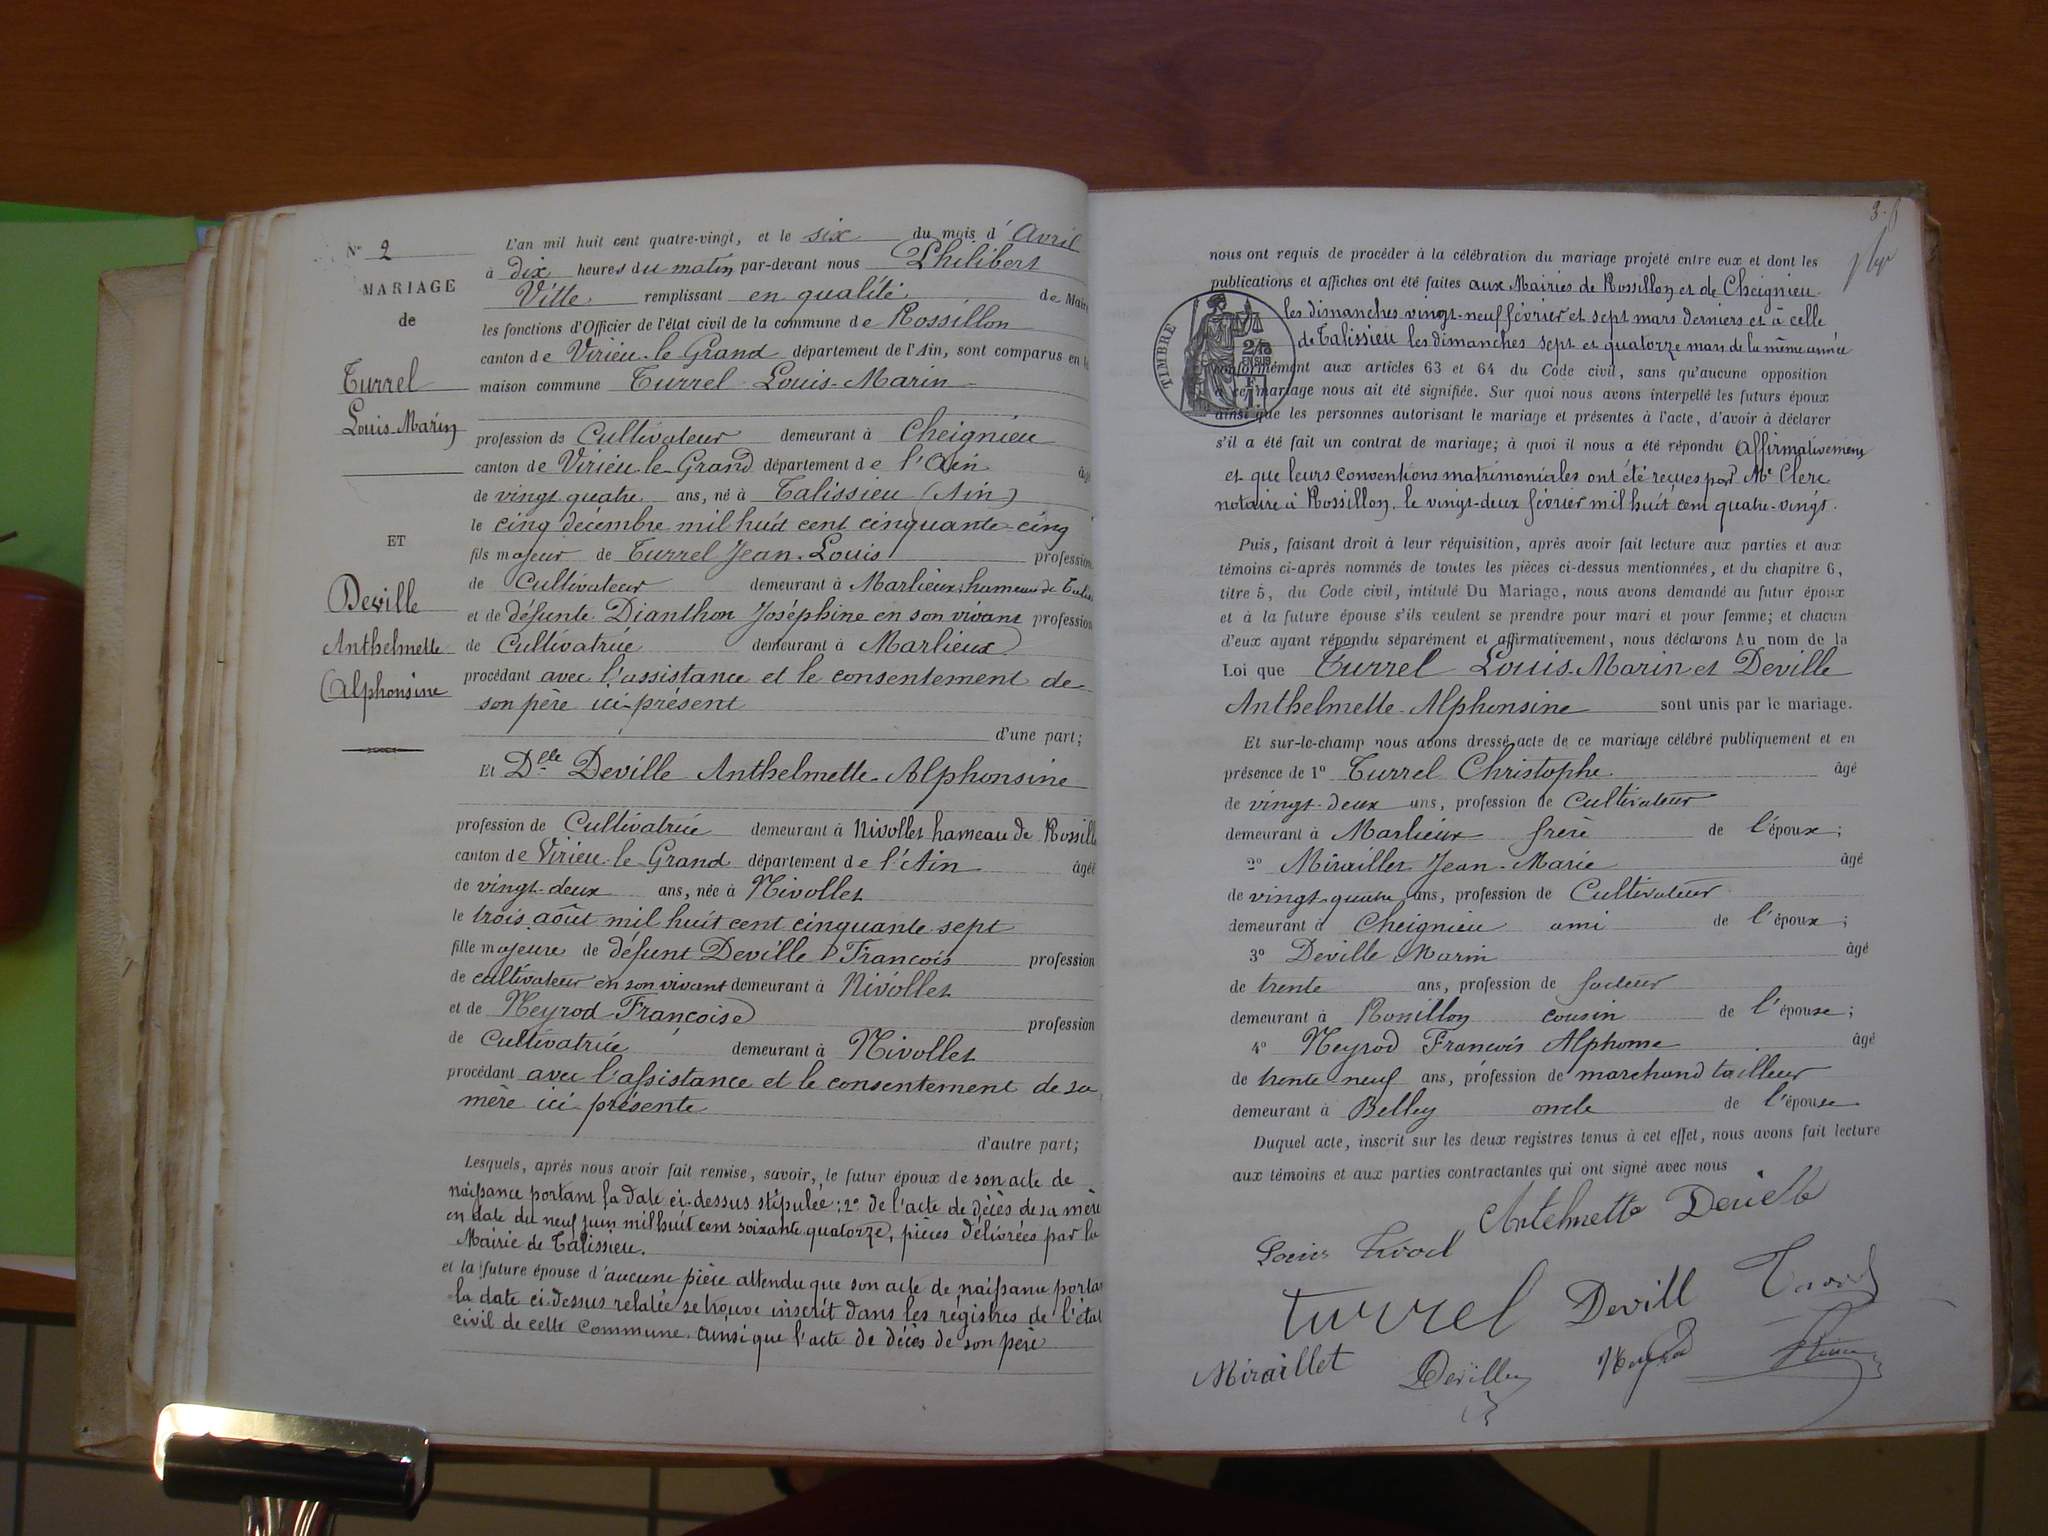 N° 2
MARIAGE
de
Turrel
Louis-Marin
ET
Deville
Anthelmette
Alphonsine
L'an mil huit cent quatre-vingt, et le six du mois d'Avril
à dix heures du matin par-devant nous Philibert
Vitte remplissant en qualité de Maire
les fonctions d'Officier de l'état civil de la commune de Rossillon
canton de Virieu-le-Grand département de l'Ain, sont comparus en la
maison commune Turrel Louis-Marin
profession de Cultivateur demeurant à Cheignieu
canton de Virieu-le-Grand département de l'Ain âgé
de vingt quatre ans, né à Talissieu (Ain)
le cinq décembre mil huit cent cinquante-cinq
fils majeur de Turrel Jean-Louis profession
de Cultivateur demeurant à Marlieux, hameau de
et de défunte Dianthon Joséphine en son vivant profession
de Cultivatrice demeurant à Marlieux
procédant avec l'assistance et le consentement de
son père ici présent
d'une part;
Et Dlle Deville Anthelmette-Alphonsine
profession de Cultivatrice demeurant à Nivollet hameau de Rossill
canton de Virieu-le-Grand département de l'Ain âgée
de vingt-deux ans, née à Nivollet
le trois août mil huit cent cinquante-sept
fille majeure de défunt Deville François profession
de cultivateur en son vivant demeurant à Nivollet
et de Neyrod Françoise profession
de Cultivatrice demeurant à Nivollet
procédant avec l'assistance et le consentement de sa
mère ici présente
d'autre part;
Lesquels, après nous avoir fait remise, savoir, le futur époux de son acte de
naissance portant la date ci-dessus stipulée; 2° de l'acte de décès de sa mère
en date du neuf juin mil huit cent soixante quatorze, pièces délivrées par la
Mairie de Talissieu.
et la future épouse d'aucune pièce attendu que son acte de naissance porta
la date ci-dessus relatée se trouve inscrit dans les régistres de l'état
civil de cette commune ainsi que l'acte de décès de son père
3.
nous ont requis de procéder à la célébration du mariage projeté entre eux et dont les
publications et affiches ont été faites aux Mairies de Rossillon et de Cheignieu
les dimanches vingt-neuf février et sept mars derniers et à celle
de Talissieu les dimanches sept et quatorze mars de la même année
TIMBRE
2/10
EN SUS
conformément aux articles 63 et 64 du Code civil, sans qu'aucune opposition
à ce mariage nous ait été signifiée. Sur quoi nous avons interpellé les futurs époux
ainsi que les personnes autorisant le mariage et présentes à l'acte, d'avoir à déclarer
s'il a été fait un contrat de mariage; à quoi il nous a été répondu affirmativement
et que leurs conventions matrimoniales ont été reçues par Me Clerc
notaire à Rossillon, le vingt-deux février mil huit cent quatre-vingt.
Puis, faisant droit à leur réquisition, après avoir fait lecture aux parties et aux
témoins ci-après nommés de toutes les pièces ci-dessus mentionnées, et du chapitre 6,
titre 5, du Code civil, intitulé Du Mariage, nous avons demandé au futur époux
et à la future épouse s'ils veulent se prendre pour mari et pour femme; et chacun
d'eux ayant répondu séparément et affirmativement, nous déclarons Au nom de la
Loi que Turrel Louis-Marin et Deville
Anthelmette-Alphonsine sont unis par le mariage.
Et sur-le-champ nous avons dressé acte de ce mariage célébré publiquement et en
présence de 1° Turrel Christophe âgé
de vingt-deux ans, profession de Cultivateur
demeurant à Marlieux frère de l'époux;
2° Miraillet Jean-Marie âgé
de vingt-quatre ans, profession de Cultivateur
demeurant à Cheignieu ami de l'époux;
3° Deville Marin âgé
de trente ans, profession de facteur
demeurant à Rossillon cousin de l'épouse;
4° Neyrod François Alphonse âgé
de trente neuf ans, profession de marchand tailleur
demeurant à Belley oncle de l'épouse
Duquel acte, inscrit sur les deux registres tenus à cet effet, nous avons fait lecture
aux témoins et aux parties contractantes qui ont signé avec nous
Antelmette Deville
Louis
Turrel Devill
Miraillet Deville Neyrod